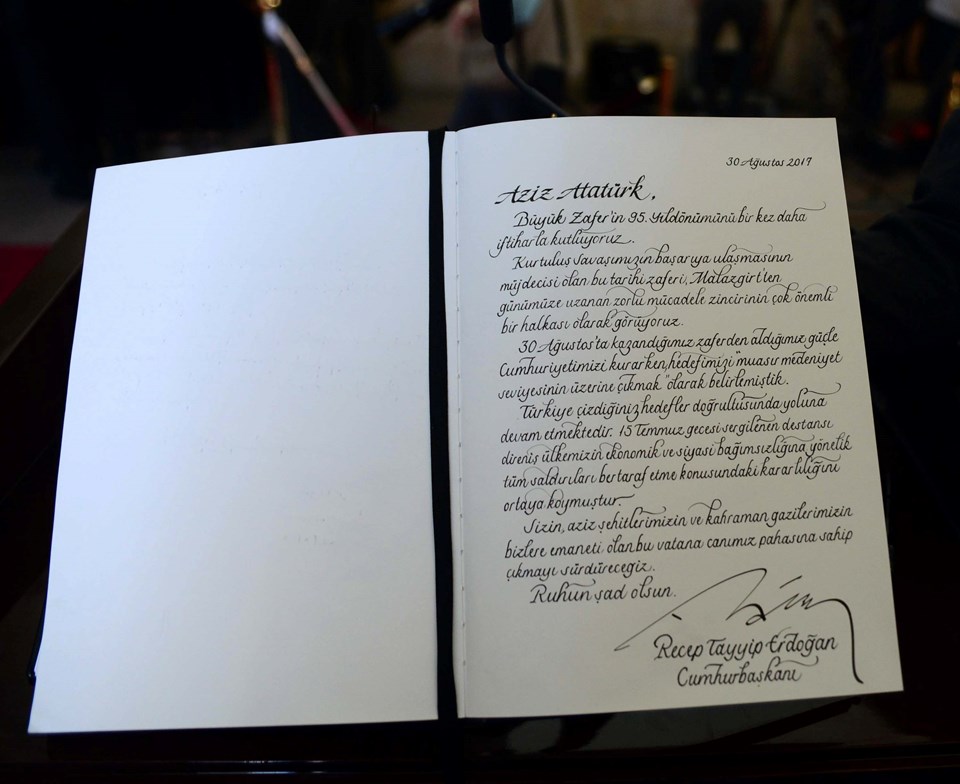 30 Ağustos 2017
Aziz Atatürk,
Büyük Zafer'in 95. Yıldönümünü bir kez daha
iftiharla kutluyoruz.
Kurtuluş Savaşımızın başarıya ulaşmasının
müjdecisi olan bu tarihi zaferi, Malazgirt'ten
günümüze uzanan zorlu mücadele zincirinin çok önemli
bir halkası olarak görüyoruz.
30 Ağustos'ta kazandığımız zaferden aldığımız güçle
Cumhuriyetimizi kurarken, hedefimizi "muasır medeniyet
seviyesinin üzerine çıkmak" olarak belirlemiştik.
Türkiye çizdiğiniz hedefler doğrultusunda yoluna
devam etmektedir. 15 Temmuz gecesi sergilenen destansı
direniş ülkemizin ekonomik ve siyasi bağımsızlığına yönelik
tüm saldırıları bertaraf etme konusundaki kararlılığını
ortaya koymuştur.
Sizin, aziz şehitlerimizin ve kahraman gazilerimizin
bizlere emaneti olan bu vatana canımız pahasına sahip
çıkmayı sürdüreceğiz.
Ruhun şad olsun.
Recep Tayyip Erdoğan
Cumhurbaşkanı